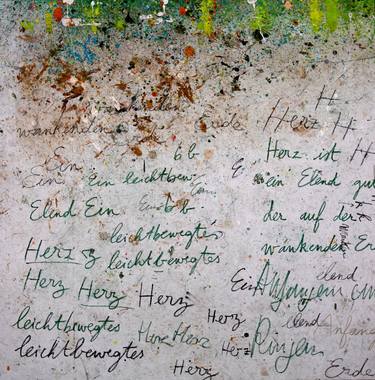 wankenden
Erde
Herz H
H
Ein
b b
E
Herz ist H
Ein
Ein leichtbew
ein Elend gut
Elend Ein
Ein b b
der auf der
leichtbewegtes
wänkenden Er
Herz
leichtbewegtes
Herz Herz
Herz
Ein
Anfangen
lend
leichtbewegtes
Herz
Herz
lend
leichtbewegtes
Herz
Ringen
Herz
Erde